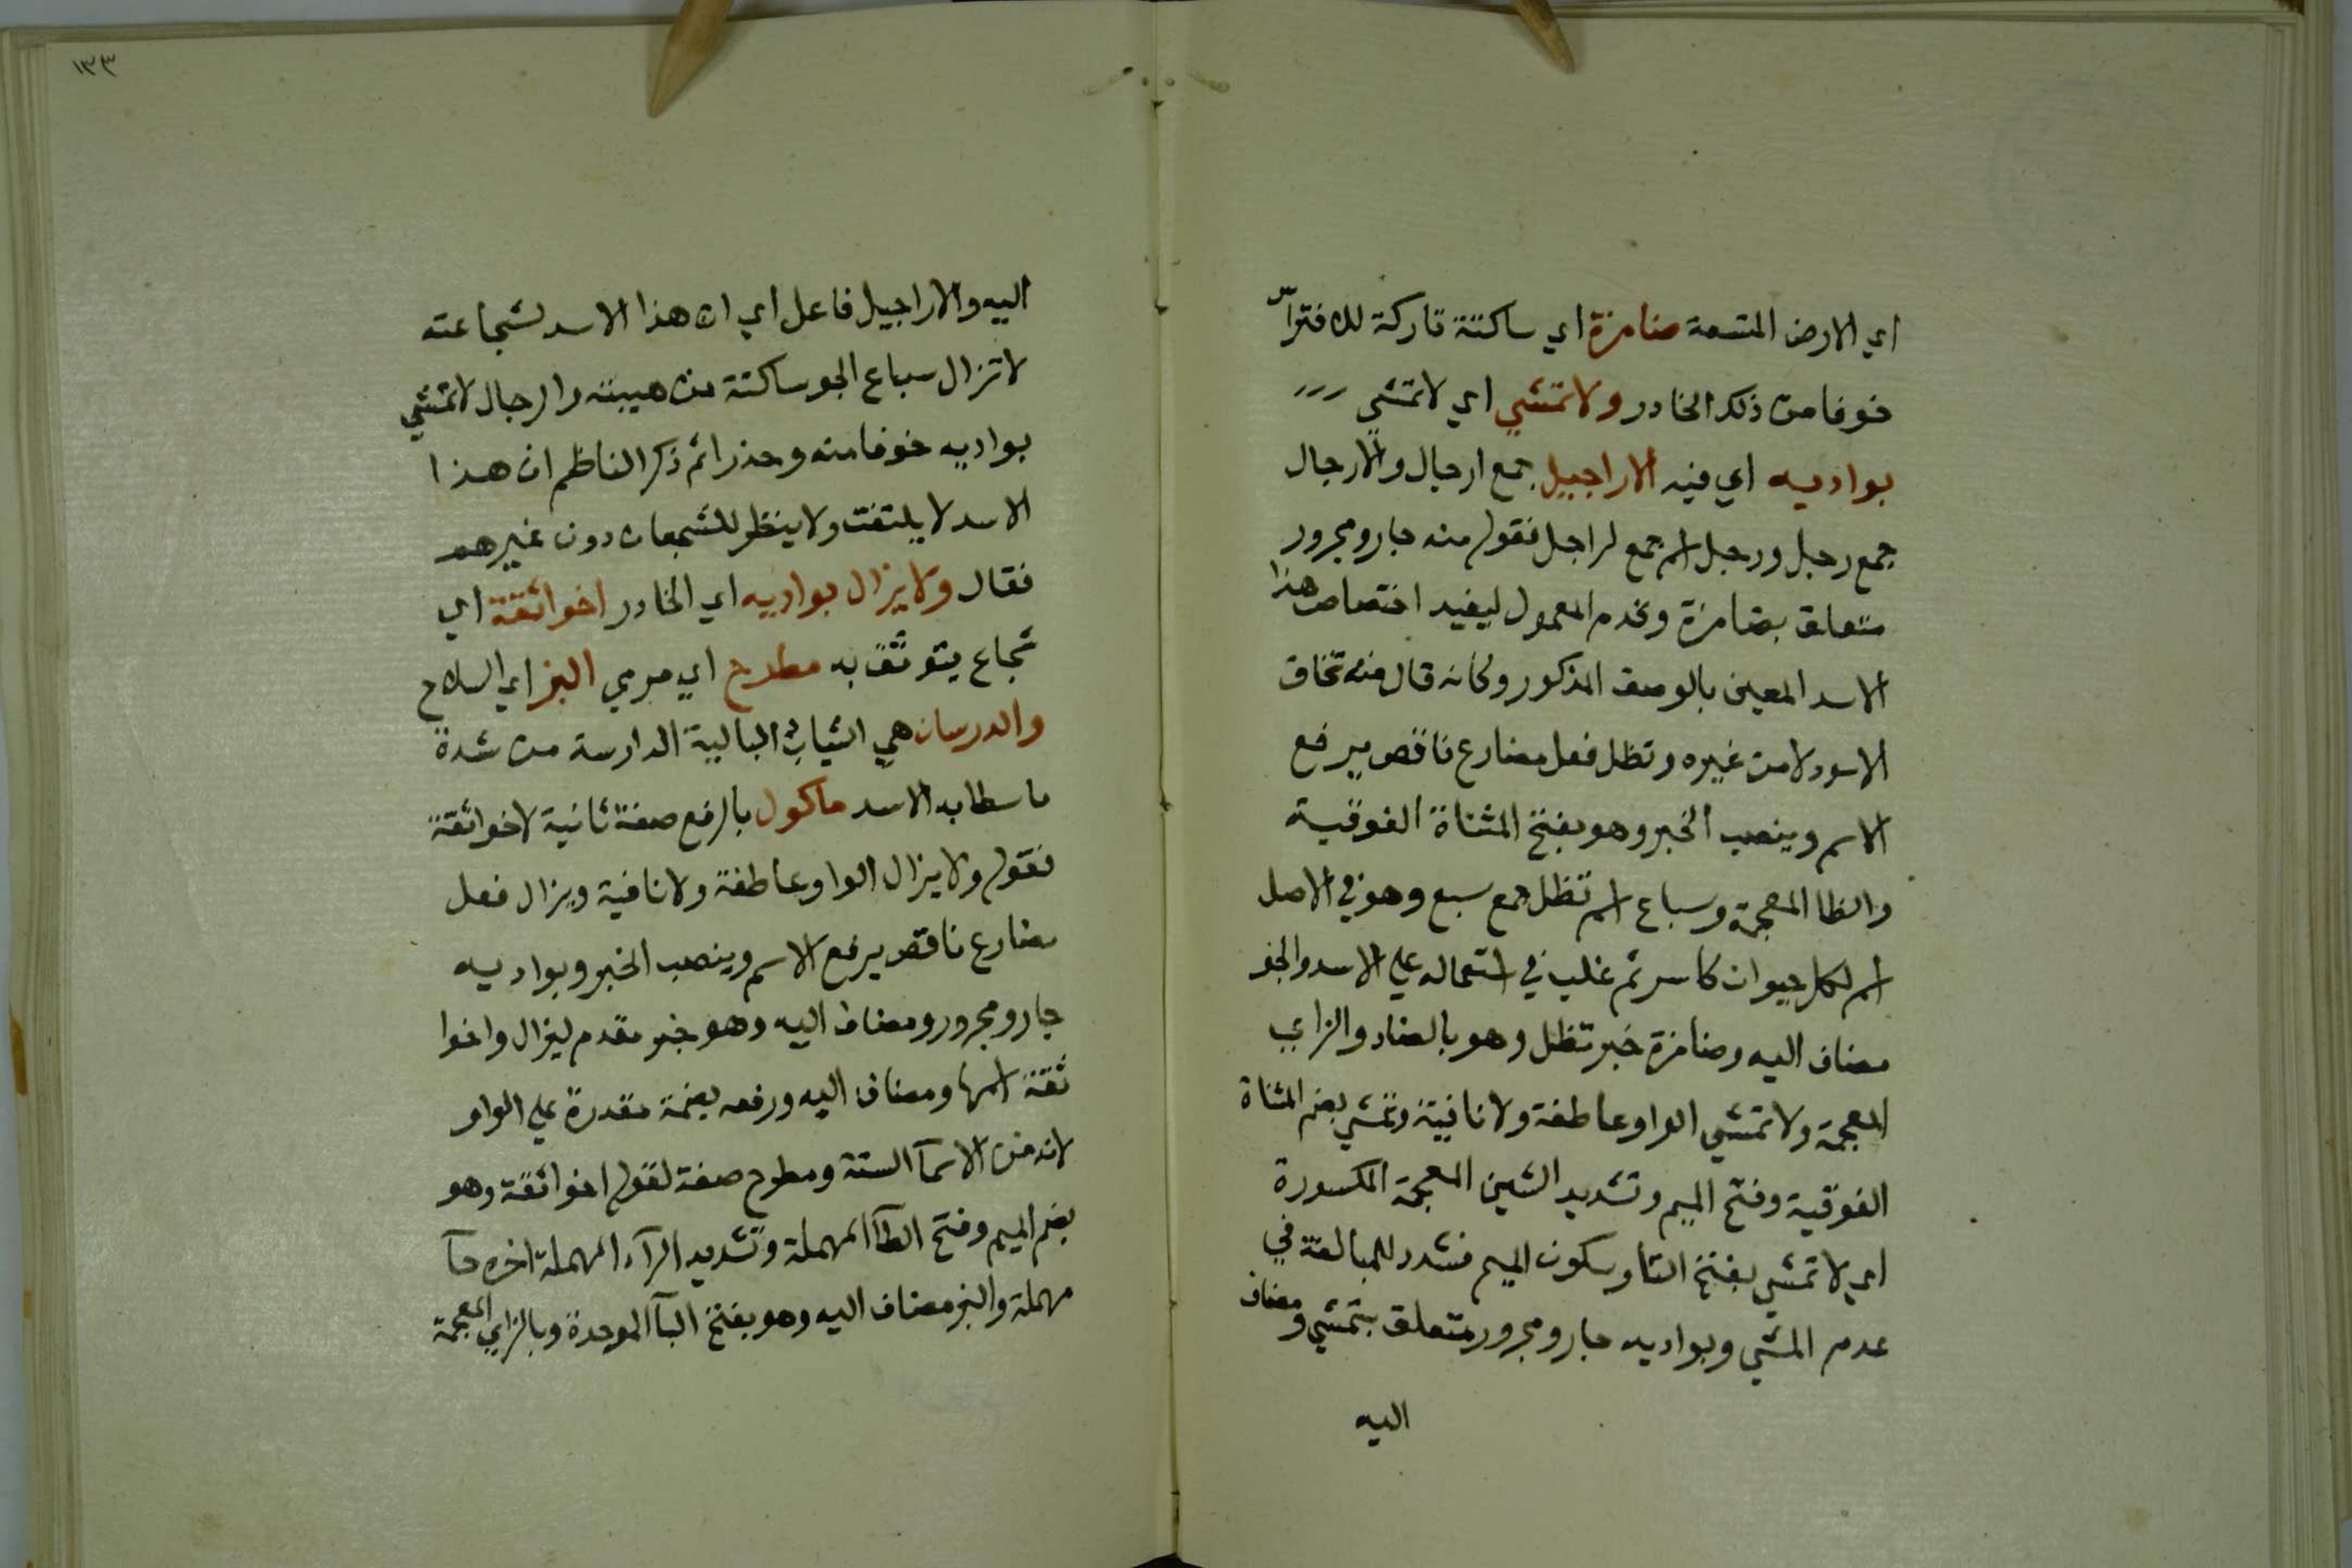 اي الارض المتسعة ضامزة اي ساكتة تاركة للافتراس
خوفا من ذلك الخادر ولا تمشي اي لا تمشي
بواديه اي فيه الاراجيل جمع ارجال والارجال
جمع رجل ورجل اسم جمع لراجل فقوله منه جار ومجرور
متعلق بضامزة وقدم المعمول ليفيد اختصاص هذا
الاسد المعين بالوصف المذكور وكانه قال منه تخاف
الاسود لا من غيره وتظل فعل مضارع ناقص يرفع
الاسم وينصب الخبر وهو بفتح المثناة الفوقية
والظا المعجمة وسباع اسم تظل جمع سبع وهو في الاصل
اسم لكل حيوان كاسر ثم غلب في استعماله علي الاسد والجو
مضاف اليه وضامزة خبر تظل وهو بالضاد والزاي
المعجمة ولا تمشي الواو عاطفة ولا نافية وتمشي بضم المثناة
الفوقية وفتح الميم وتشديد الشين المعجمة المكسورة
اي لا تمشي بفتح التا وسكون الميم فشدد للمبالغة في
عدم المشي وبواديه جار ومجرور متعلق بتمشي ومضاف
اليه
١٣٣
اليه والاراجيل فاعل اي ان هذا الاسد لشجاعته
لا تزال سباع الجو ساكتة من هيبته والرجال لا تمشي
بواديه خوفا منه وحذرا ثم ذكر الناظم ان هذا
الاسد لا يلتفت ولا ينظر للشجعان دون غيرهم
فقال ولا يزال بواديه اي الخادر اخو اثقة اي
شجاع يتوثق به مطرح اي مرمي البز اي السلاح
والدرسان هي الثياب البالية الدارسة من شدة
ما سطا به الاسد ماكول بالرفع صفة ثانية لاخو اثقة
فقوله ولا يزال الواو عاطفة ولا نافية ويزال فعل
مضارع ناقص يرفع الاسم وينصب الخبر وبواديه
جار ومجرور ومضاف اليه وهو خبر مقدم ليزال واخوا
ثقة اسمها ومضاف اليه ورفعه بضمة مقدرة علي الواو
لانه من الاسمآ الستة ومطرح صفة لقوله اخو اثقة وهو
بضم الميم وفتح الطآ المهملة وتشديد الرآء المهملة اخره حآ
مهملة والبز مضاف اليه وهو بفتح البآ الموحدة وبالزاي المعجمة